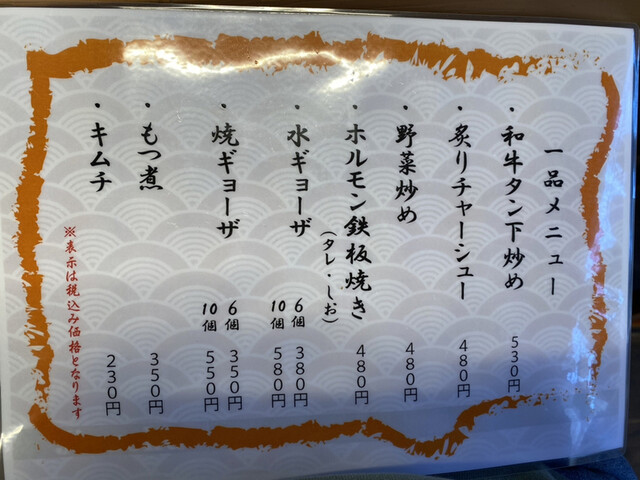 一品メニュー
・和牛タン下炒め 530円
・炙りチャーシュー 480円
・野菜炒め 480円
・ホルモン鉄板焼き(タレ・しお) 480円
・水ギョーザ 6個 380円
10個 580円
・焼ギョーザ 6個 350円
10個 550円
・もつ煮 350円
・キムチ 230円
※表示は税込み価格となります